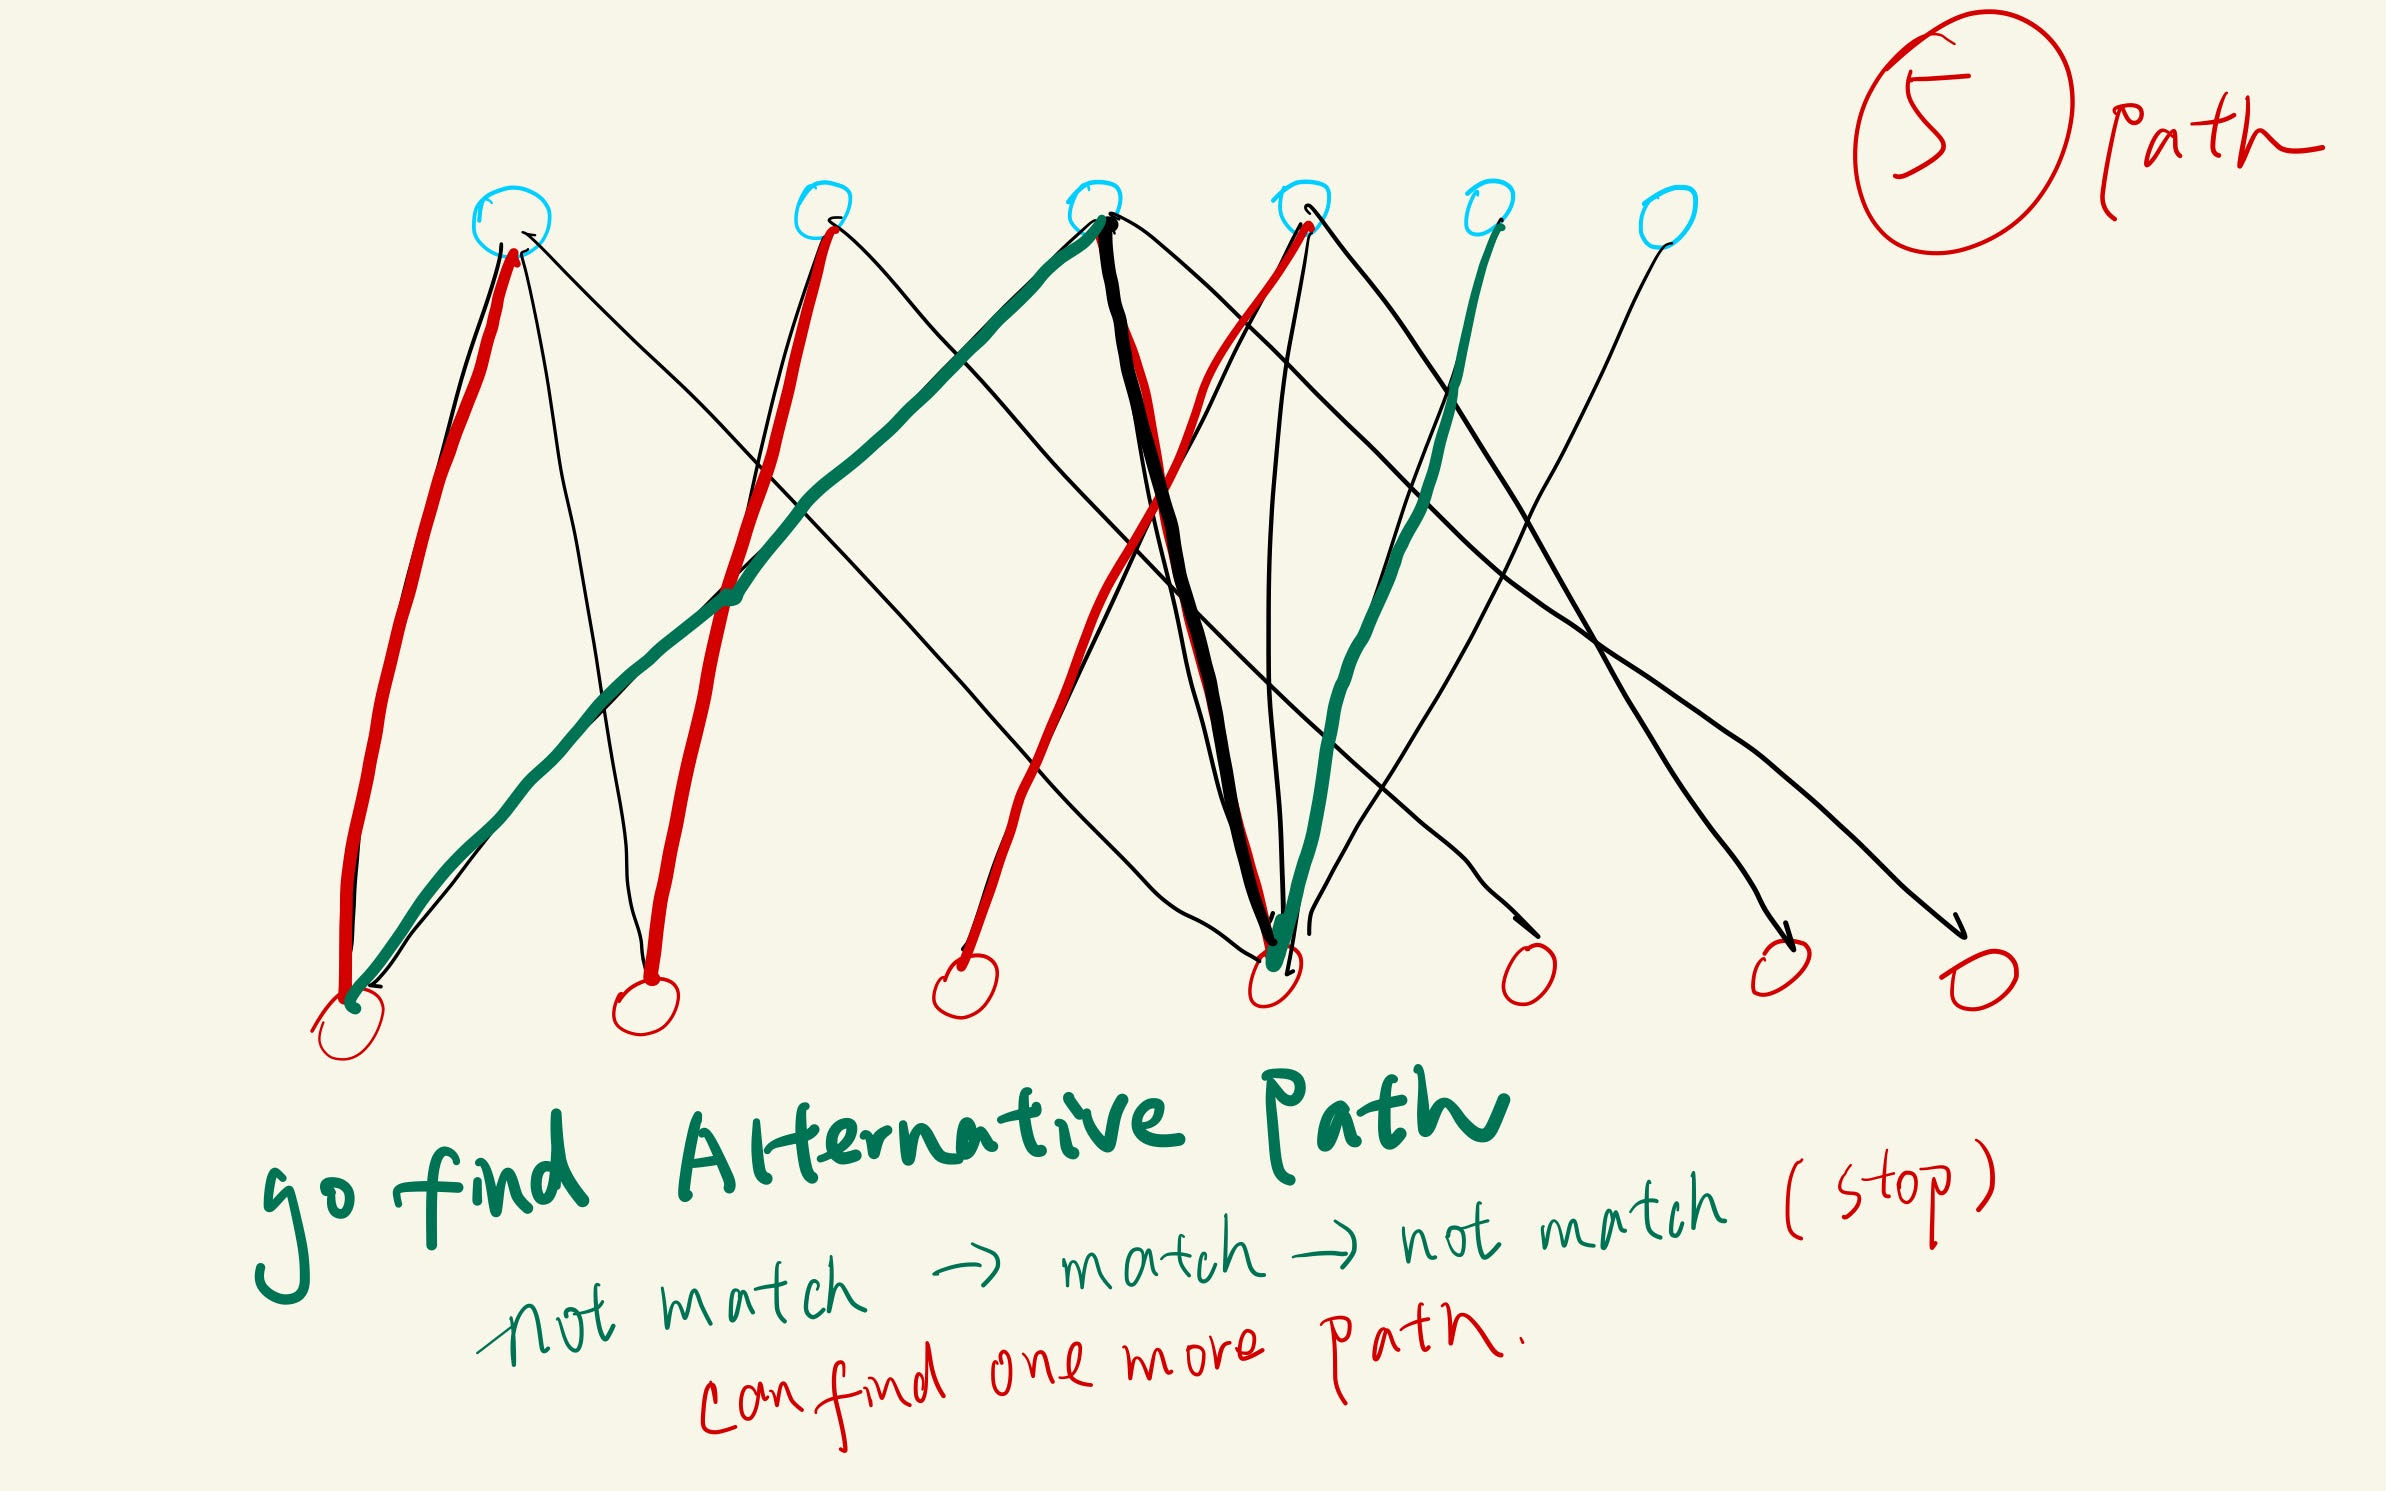 5 Path
go find Alternative Path
not match → match → not match (stop)
can find one more path.